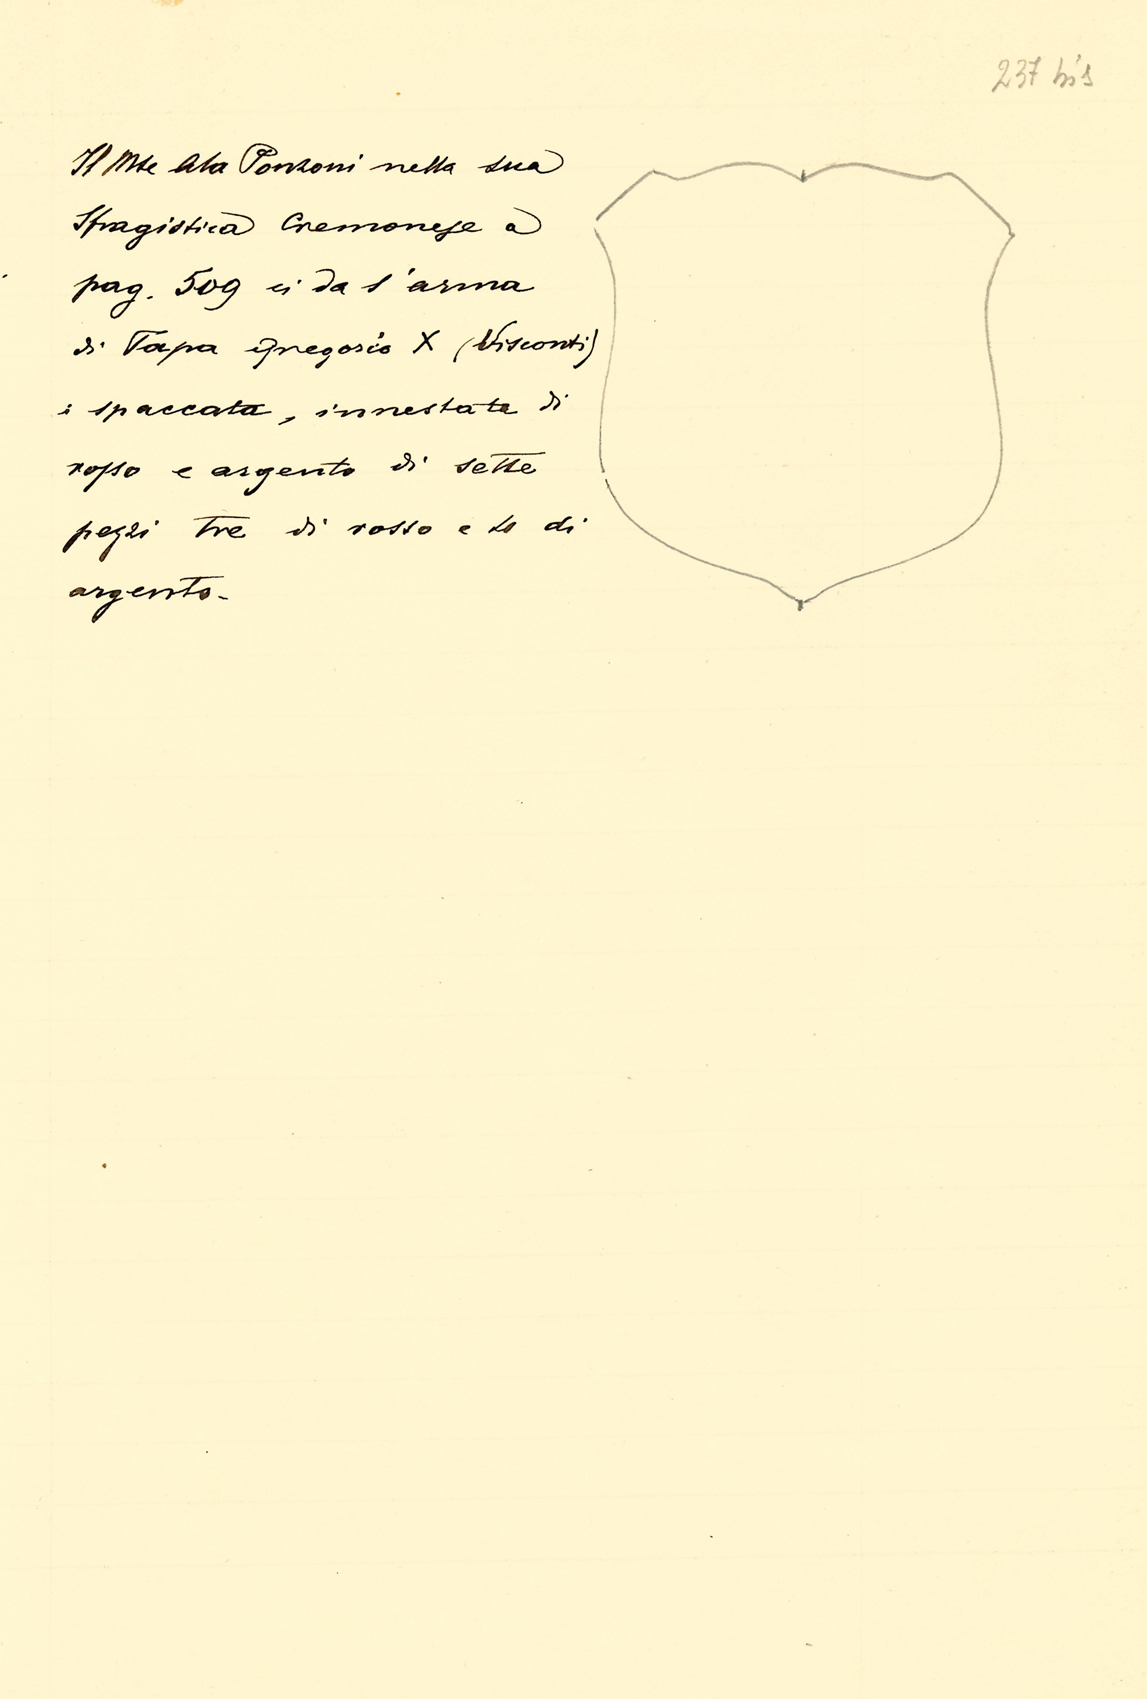 237 bis
Il Mse Ala Ponzoni nella sua
Sfragistica Cremonese a
pag. 509 ci da l'arma
di Papa Gregorio X (Visconti)
è spaccata, innestata di
rosso e argento di sette
pezzi tre di rosso e 4 di
argento.